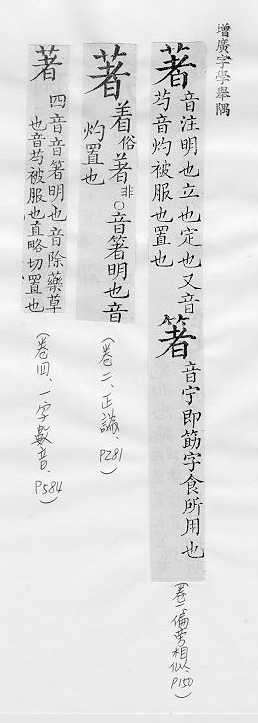 增廣字學舉隅
著 音注明也立也定也又音
芍音灼被服也置也
箸 音宁即筯字食所用也
(卷二偏旁相似、P150)
著 着俗著非○音箸明也音
灼置也
(卷二、正譌、P281)
著 四音音箸明也音除藥草
也音芍被服也直略切置也
(卷四、一字數音、P584)